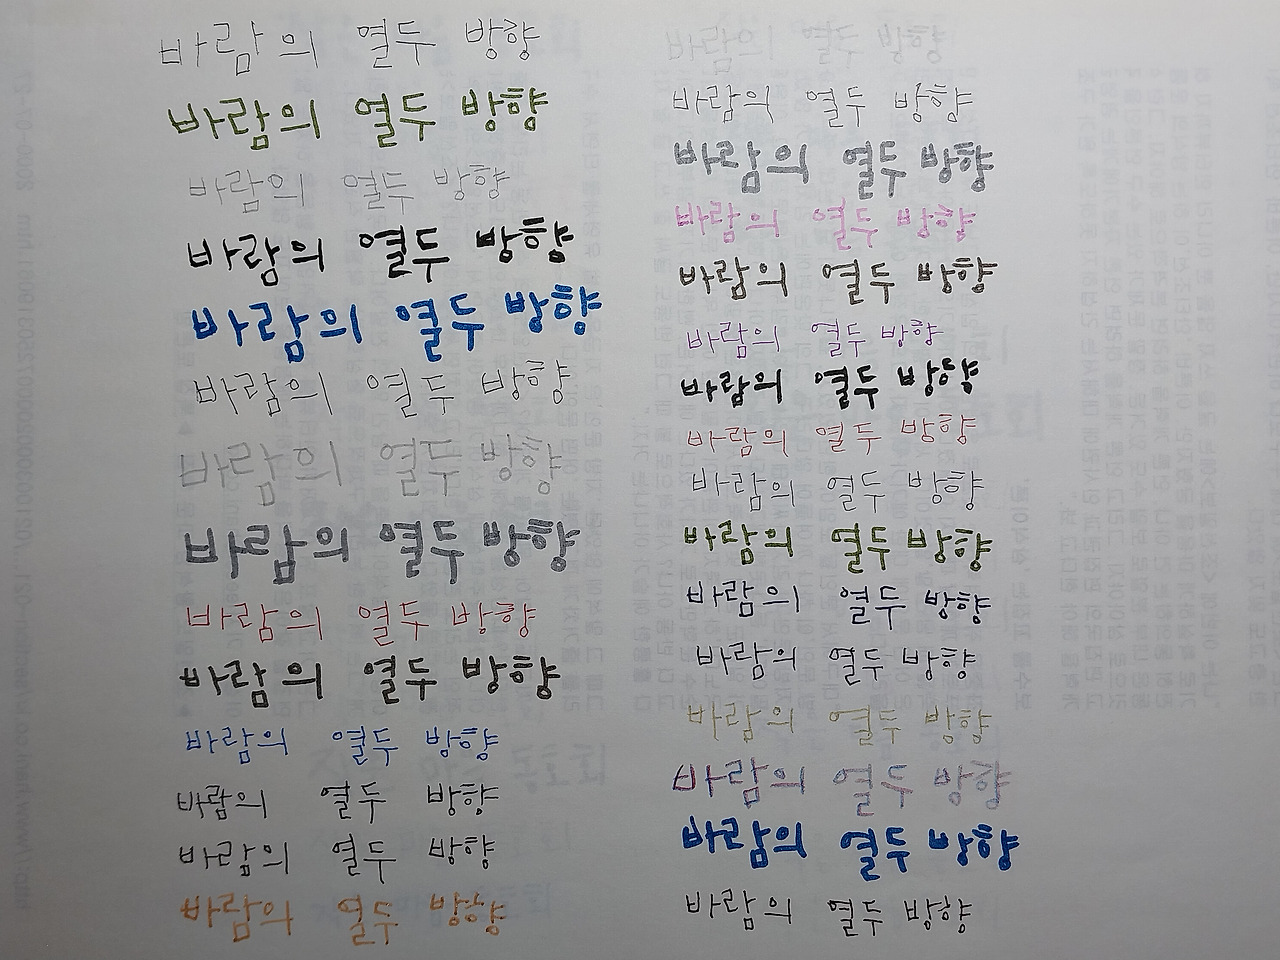 바람의 열두 방향
바람의 열두 방향
바람의 열두 방향
바람의 열두 방향
바람의 열두 방향
바람의 열두 방향
바람의 열두 방향
바람의 열두 방향
바람의 열두 방향
바람의 열두 방향
바람의 열두 방향
바람의 열두 방향
바람의 열두 방향
바람의 열두 방향
바람의 열두 방향
바람의 열두 방향
바람의 열두 방향
바람의 열두 방향
바람의 열두 방향
바람의 열두 방향
바람의 열두 방향
바람의 열두 방향
바람의 열두 방향
바람의 열두 방향
바람의 열두 방향
바람의 열두 방향
바람의 열두 방향
바람의 열두 방향
바람의 열두 방향
바람의 열두 방향